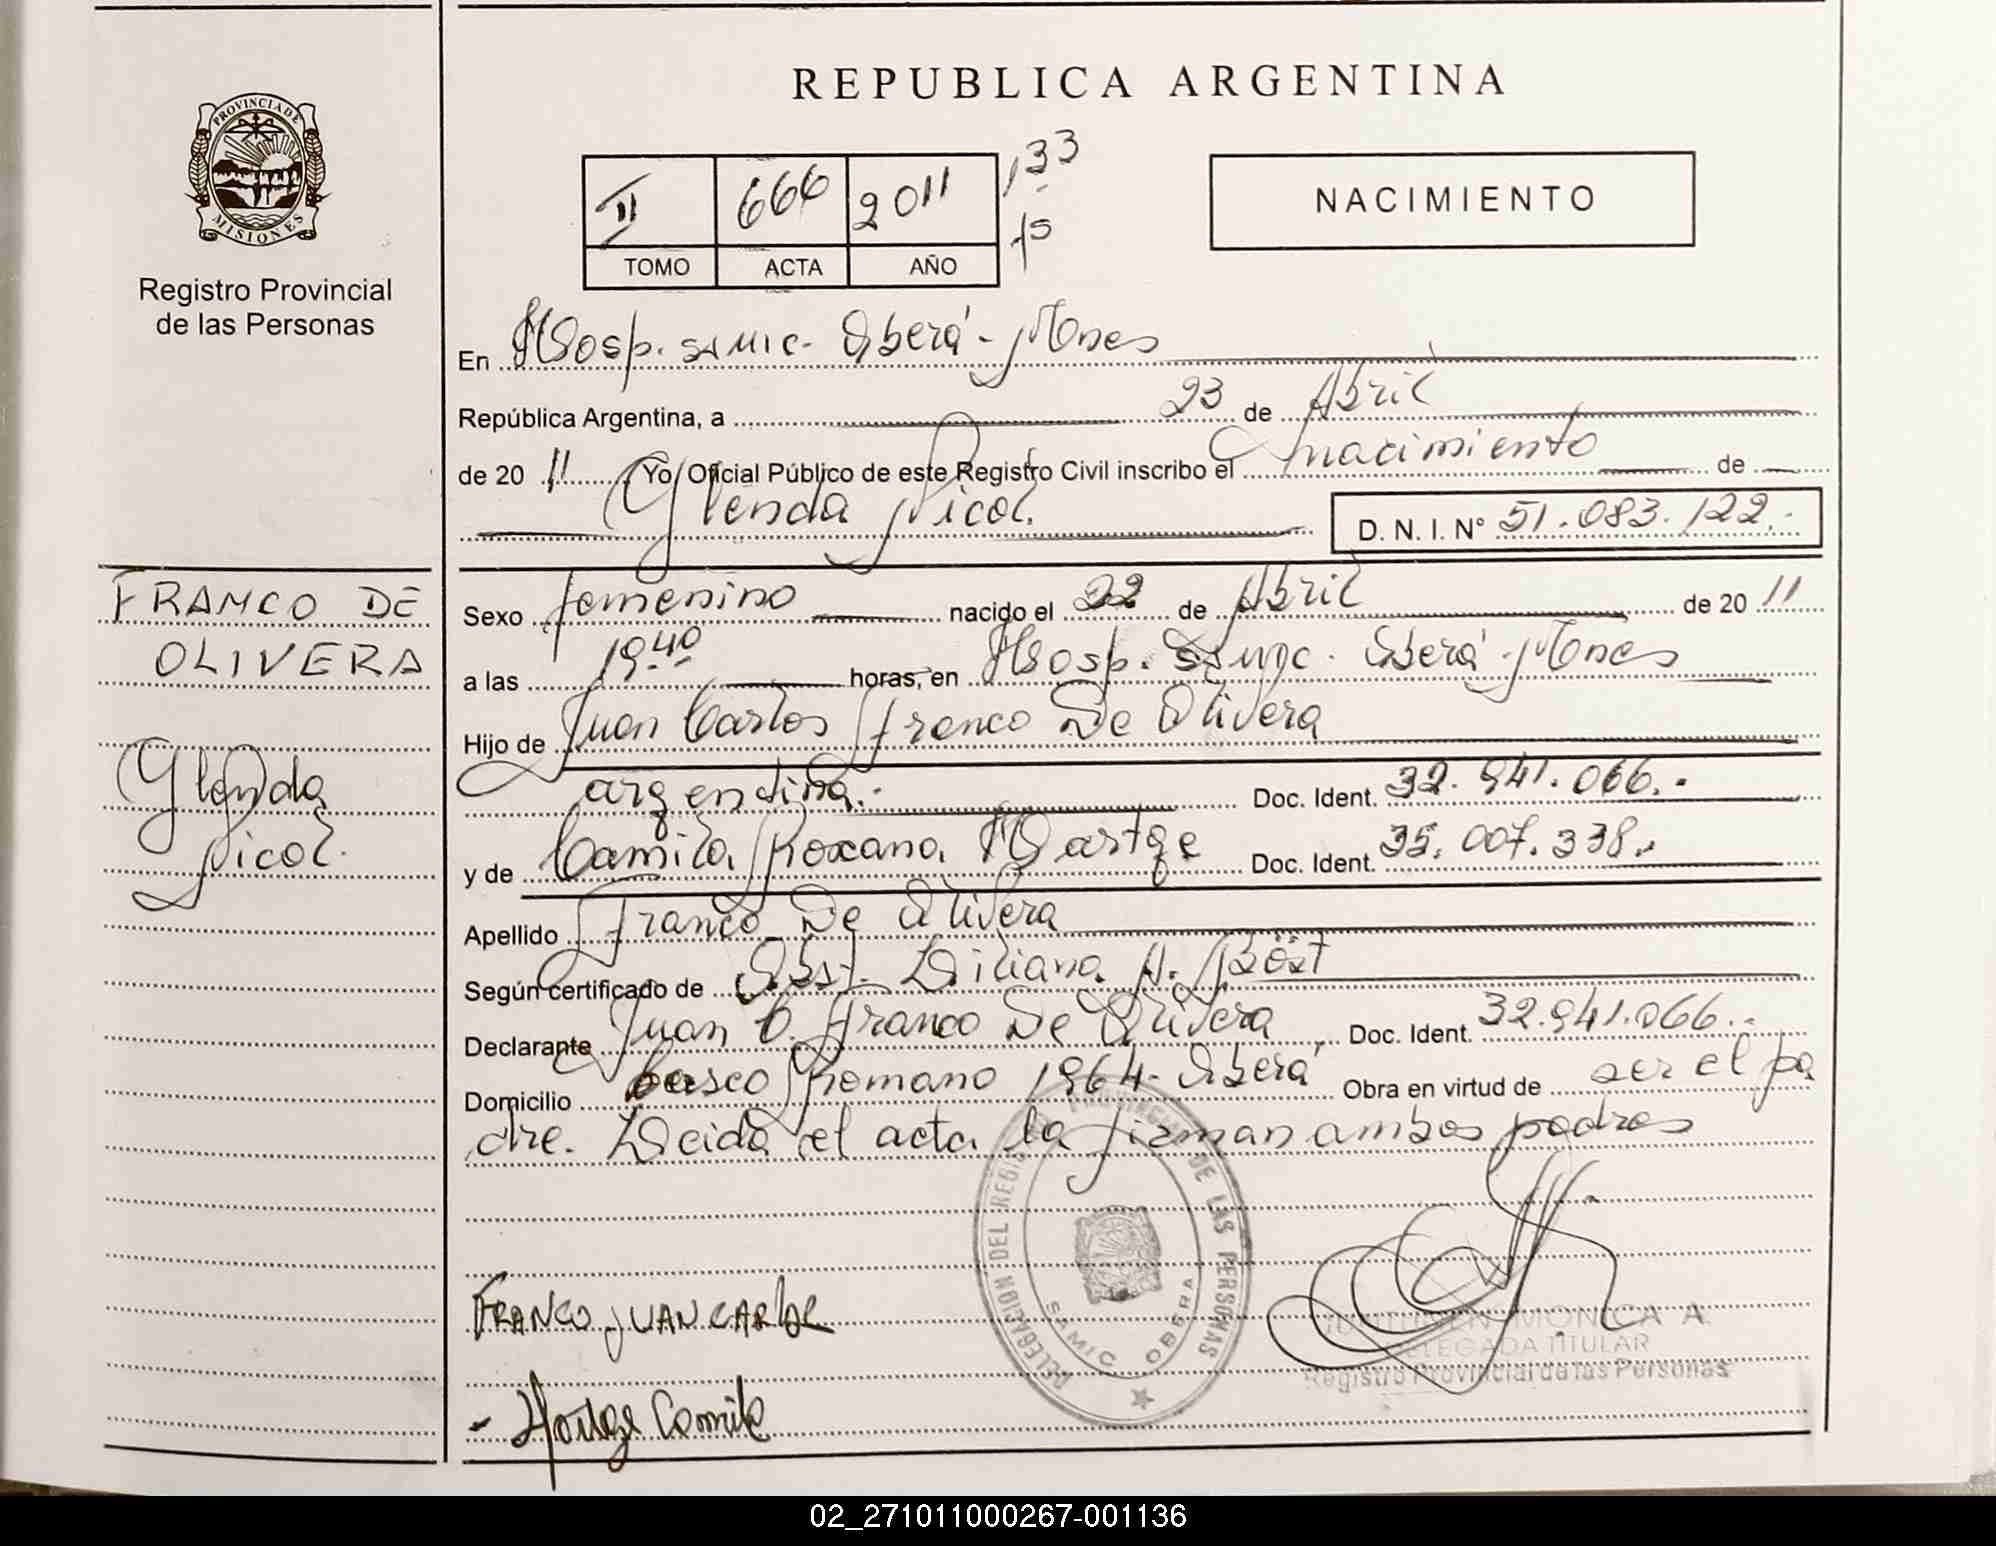 PROVINCIA DE
MISIONES
Registro Provincial
de las Personas
REPUBLICA ARGENTINA
II 666 2011 133
15
TOMO ACTA AÑO
NACIMIENTO
En Hosp. SAMIC. Oberá - Mnes
República Argentina, a 23 de Abril
de 20 11 Yo, Oficial Público de este Registro Civil inscribo el nacimiento de
Glenda Nicol. D. N. I. N° 51.083.122.-
FRANCO DE
OLIVERA
Glenda
Nicol.
Sexo femenino nacido el 22 de Abril de 20 11
a las 19:40 horas, en Hosp. SAMIC. Oberá - Mnes
Hijo de Juan Carlos Franco De Olivera
argentina.- Doc. Ident. 32.941.066.-
y de Camila Roxana Doc. Ident. 35.007.338.-
Apellido Franco De Olivera
Según certificado de Obst. Liliana A.
Declarante Juan C. Franco De Olivera Doc. Ident. 32.941.066.-
Domicilio Casco Romano 1964 - Oberá Obra en virtud de ser el pa
dre. Leida el acta la firman ambos padres
FRANCO JUAN CARLOS
- Camila
DELEGACION DEL REGISTRO PROVINCIAL DE LAS PERSONAS
SAMIC OBERA
MONICA A.
DELEGADA TITULAR
Registro Provincial de las Personas
02_271011000267-001136